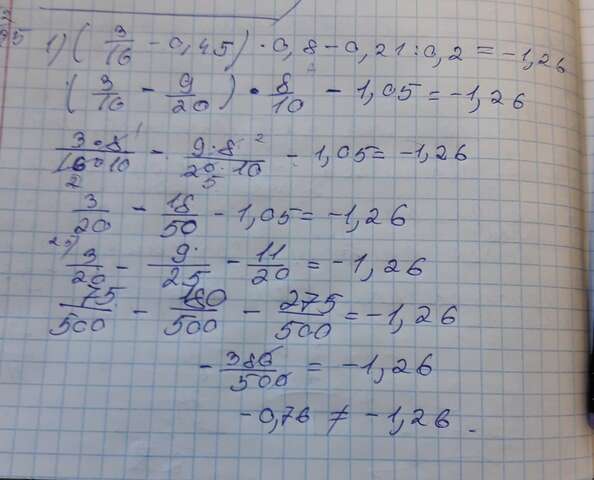 1) ( 3/16 - 0,45) · 0,8 - 0,21 : 0,2 = -1,26
( 3/16 - 9/20 ) · 8/10 - 1,05 = -1,26
3·8 1/16·10 2 - 9·8 2/20·10 5 - 1,05 = -1,26
3/20 - 18/50 - 1,05 = -1,26
3/20 - 9/25 - 11/20 = -1,26
75/500 - 180/500 - 275/500 = -1,26
- 380/500 = -1,26
-0,76 ≠ -1,26.